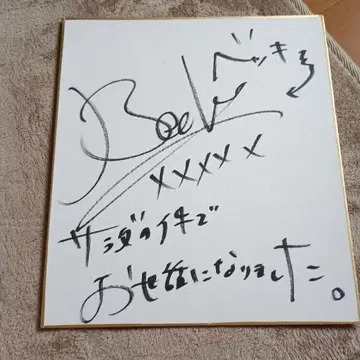 ベッキー
Becky
xxxxx
サラダの件で
お世話になりました。